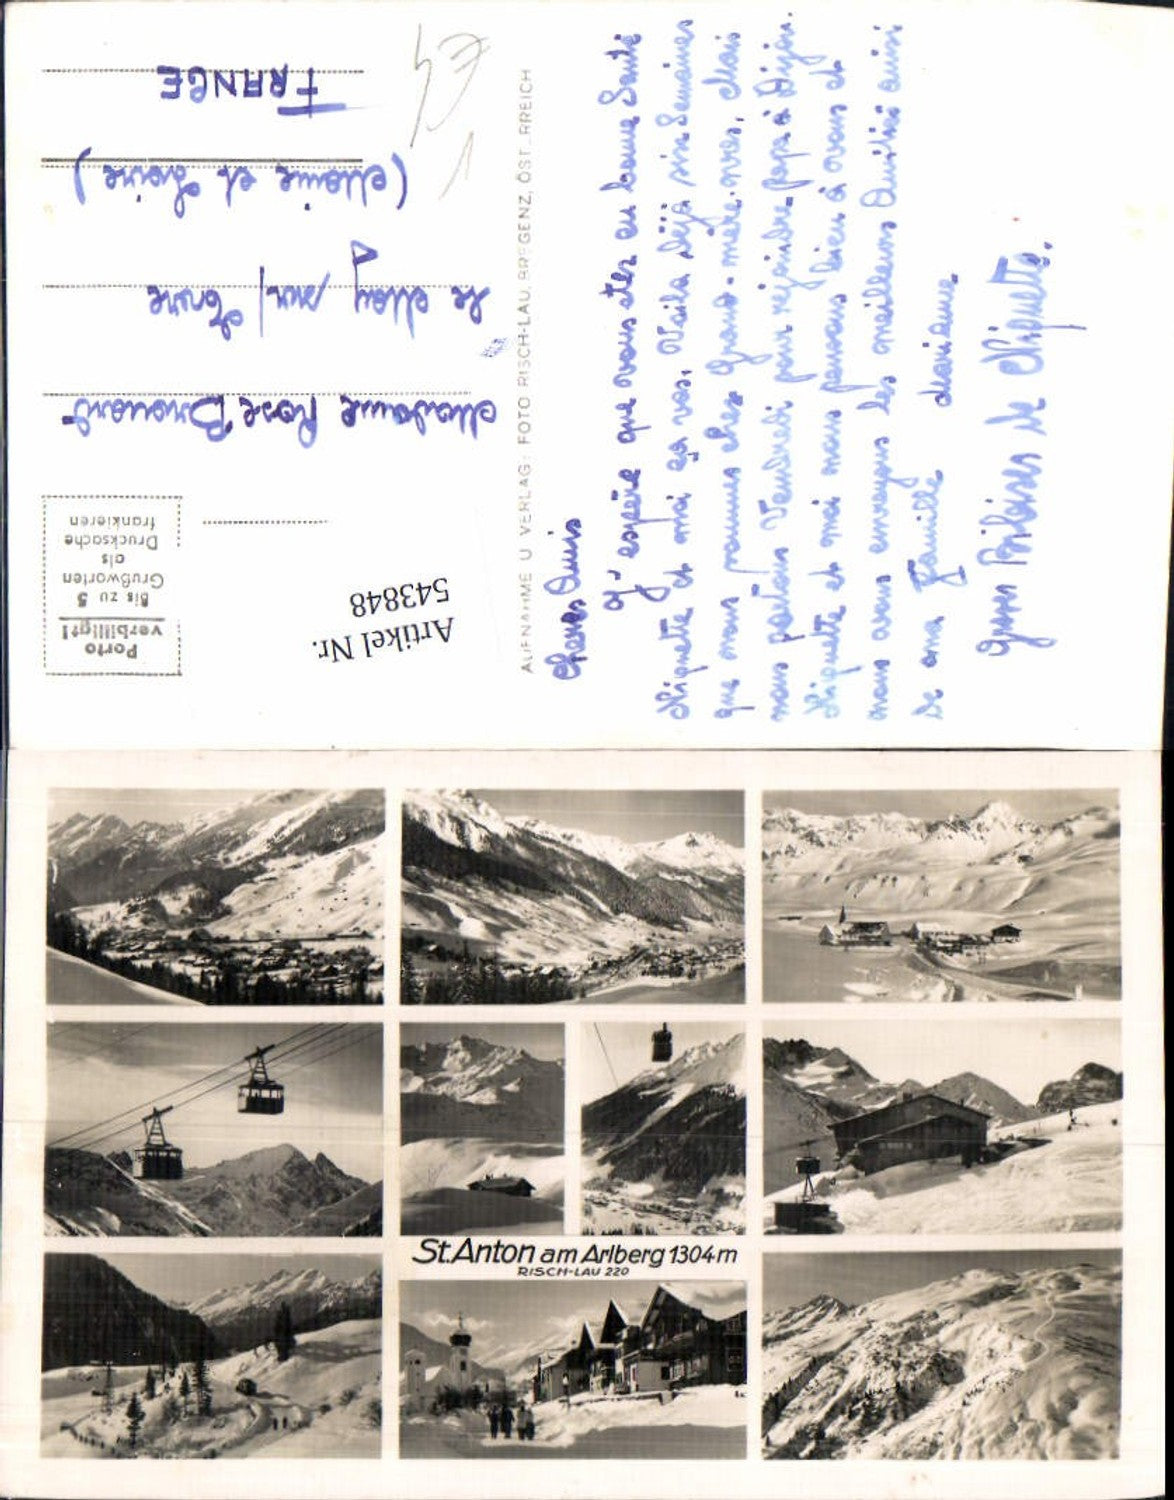 Chers Amis
J'espère que vous êtes en bonne Santé
Niquette et moi ça va. Voilà déjà six Semaines
que nous sommes chez Grand-mère-nres, Mais
nous partons Vendredi pour rejoindre papa à Dijon.
Niquette et moi nous pensons bien à vous et
nous vous envoyons les meilleurs Amitiés ainsi
de ma Famille Mariane
Gros Bisoires de Niquette.
AUFNAHME U VERLAG: FOTO RISCH-LAU, BREGENZ, ÖSTERREICH
Artikel Nr.
543848
Porto
verbilligt!
Bis zu 5
Grußworten
als
Drucksache
frankieren
Madame Rose Brouard
Le May sur Evre
(Maine et Loire)
FRANCE
St. Anton am Arlberg 1304 m
RISCH-LAU 220